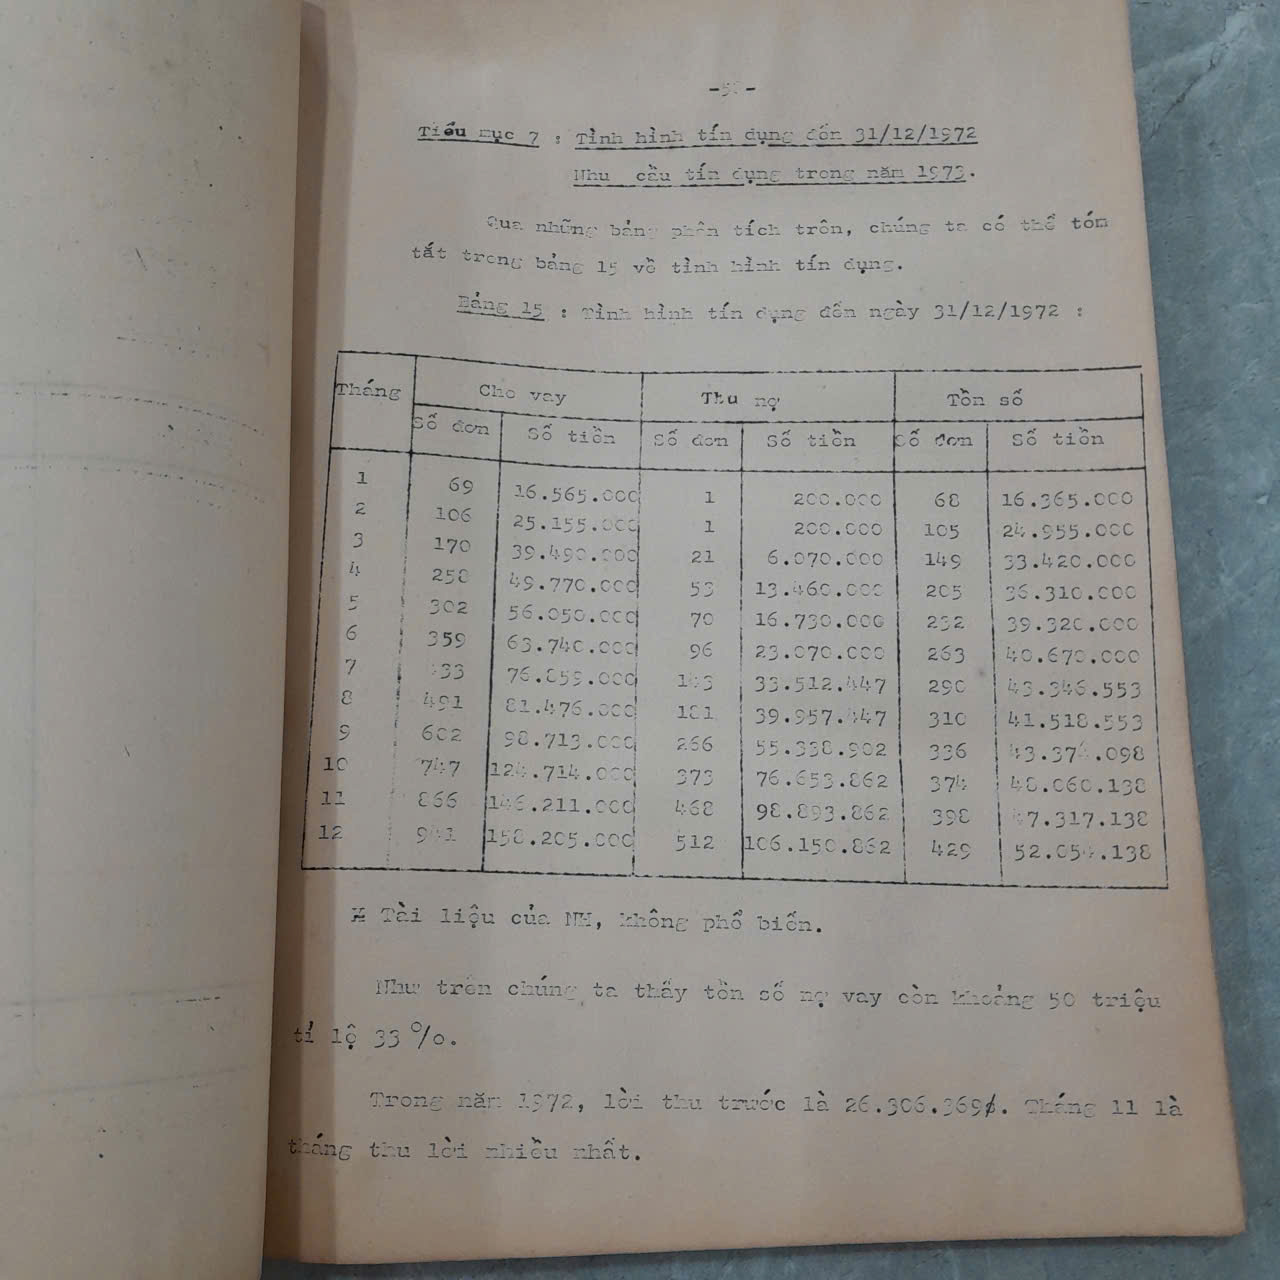 Tiểu mục 7 : Tình hình tín dụng đến 31/12/1972
Nhu cầu tín dụng trong năm 1973.
Qua những bảng phân tích trên, chúng ta có thể tóm
tắt trong bảng 15 về tình hình tín dụng.
Bảng 15 : Tình hình tín dụng đến ngày 31/12/1972 :
Tháng Cho vay Thu nợ Tồn số
Số đơn Số tiền Số đơn Số tiền Số đơn Số tiền
1 69 16.565.000 1 200.000 68 16.365.000
2 106 25.155.000 1 200.000 105 24.955.000
3 170 39.490.000 21 6.070.000 149 33.420.000
4 258 49.770.000 53 13.460.000 205 36.310.000
5 302 56.050.000 70 16.730.000 232 39.320.000
6 359 63.740.000 96 23.070.000 263 40.670.000
7 76.859.000 33.512.447 290 43.346.553
8 491 81.476.000 181 39.957.447 310 41.518.553
9 602 98.713.000 266 55.338.902 336 43.374.098
10 747 124.714.000 373 76.653.862 374 48.060.138
11 866 146.211.000 468 98.893.862 398 47.317.138
12 941 158.205.000 512 106.150.862 429 52.054.138
Tài liệu của NH, không phổ biến.
Như trên chúng ta thấy tồn số nợ vay còn khoảng 50 triệu
tỉ lệ 33 %.
Trong năm 1972, lời thu trước là 26.306.369$. Tháng 11 là
tháng thu lời nhiều nhất.